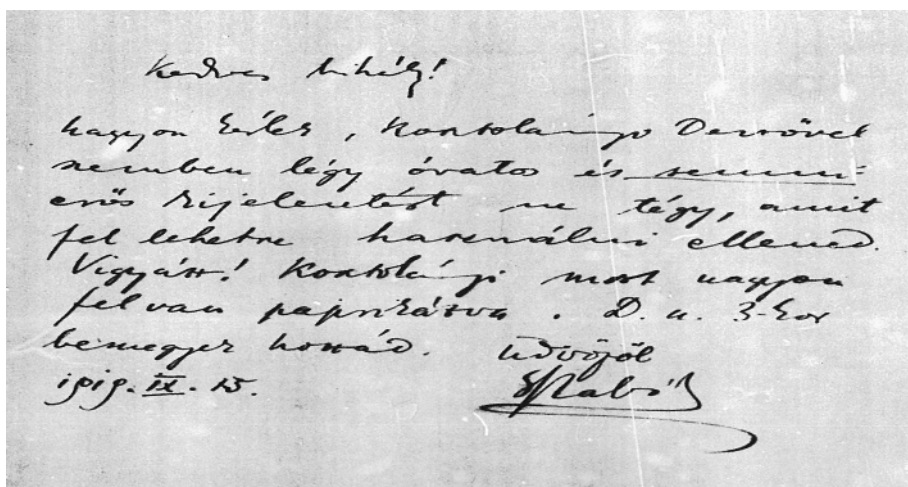 Kedves Mihály!
Nagyon kérlek, Kosztolányi Dezsővel
szemben légy óvatos és semmi
erős kijelentést ne tégy, amit
fel lehetne használni ellened.
Vigyázz! Kosztolányi most nagyon
fel van paprikázva. D. u. 3-kor
bemegyek hozzád. Üdvözöl
1919. IX. 15.